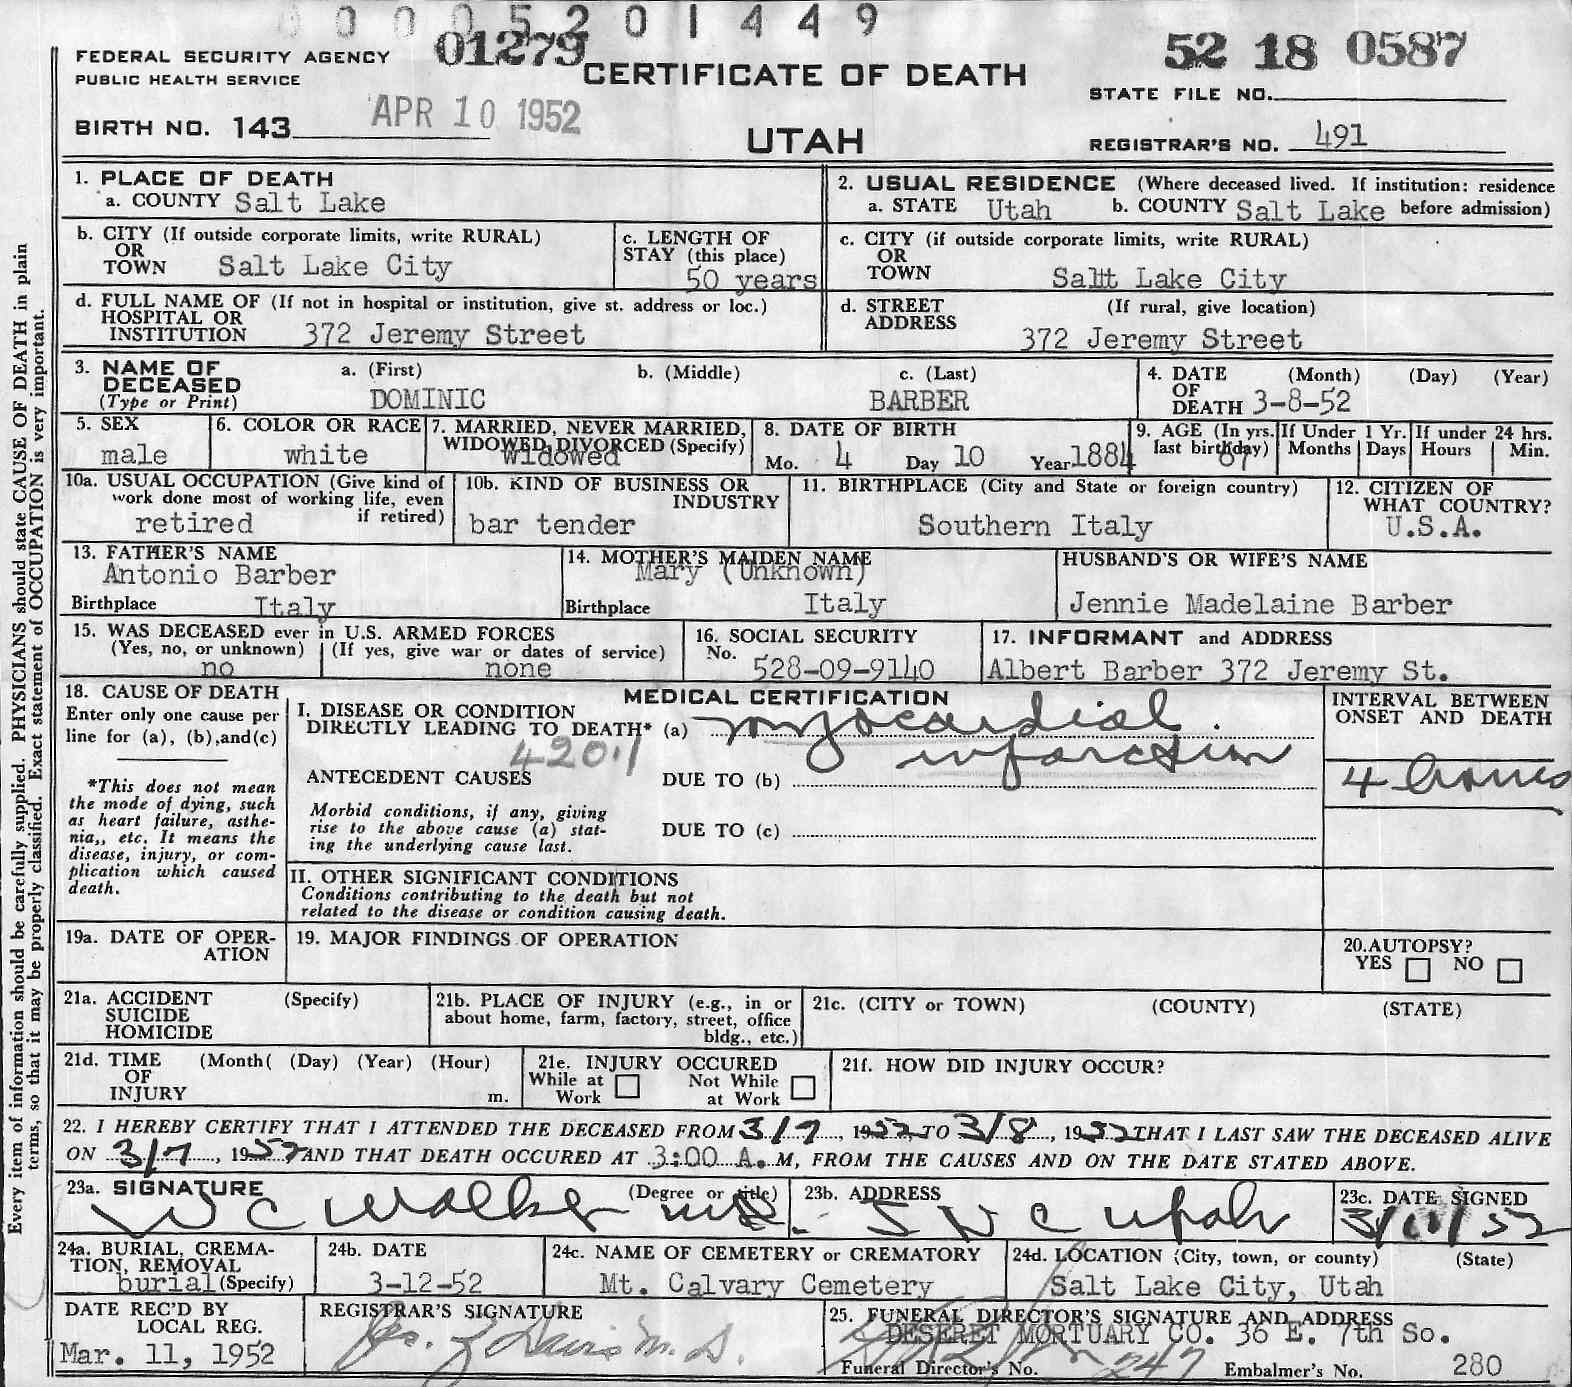 0 0 0 5 2 0 1 4 4 9
FEDERAL SECURITY AGENCY
PUBLIC HEALTH SERVICE
01279
CERTIFICATE OF DEATH
52 18 0587
STATE FILE NO.
BIRTH NO. 143
APR 10 1952
UTAH
REGISTRAR'S NO. 491
Every item of information should be carefully supplied. PHYSICIANS should state CAUSE OF DEATH in plain
terms, so that it may be properly classified. Exact statement of OCCUPATION is very important.
1. PLACE OF DEATH
a. COUNTY Salt Lake
2. USUAL RESIDENCE (Where deceased lived. If institution: residence
a. STATE Utah b. COUNTY Salt Lake before admission)
b. CITY (If outside corporate limits, write RURAL)
OR
TOWN Salt Lake City
c. LENGTH OF
STAY (this place)
50 years
c. CITY (if outside corporate limits, write RURAL)
OR
TOWN Saltt Lake City
d. FULL NAME OF (If not in hospital or institution, give st. address or loc.)
HOSPITAL OR
INSTITUTION 372 Jeremy Street
d. STREET (If rural, give location)
ADDRESS
372 Jeremy Street
3. NAME OF a. (First) b. (Middle) c. (Last)
DECEASED
(Type or Print) DOMINIC BARBER
4. DATE (Month) (Day) (Year)
OF
DEATH 3-8-52
5. SEX
male
6. COLOR OR RACE
white
7. MARRIED, NEVER MARRIED,
WIDOWED, DIVORCED (Specify)
widowed
8. DATE OF BIRTH
Mo. 4 Day 10 Year 1884
9. AGE (In yrs.
last birthday)
67
If Under 1 Yr.
Months Days
If under 24 hrs.
Hours Min.
10a. USUAL OCCUPATION (Give kind of
work done most of working life, even
if retired)
retired
10b. KIND OF BUSINESS OR
INDUSTRY
bar tender
11. BIRTHPLACE (City and State or foreign country)
Southern Italy
12. CITIZEN OF
WHAT COUNTRY?
U.S.A.
13. FATHER'S NAME
Antonio Barber
Birthplace Italy
14. MOTHER'S MAIDEN NAME
Mary (Unknown)
Birthplace Italy
HUSBAND'S OR WIFE'S NAME
Jennie Madelaine Barber
15. WAS DECEASED ever in U.S. ARMED FORCES
(Yes, no, or unknown) (If yes, give war or dates of service)
no none
16. SOCIAL SECURITY
No.
528-09-9140
17. INFORMANT and ADDRESS
Albert Barber 372 Jeremy St.
18. CAUSE OF DEATH
Enter only one cause per
line for (a), (b),and(c)
*This does not mean
the mode of dying, such
as heart failure, asthe-
nia,, etc. It means the
disease, injury, or com-
plication which caused
death.
MEDICAL CERTIFICATION
I. DISEASE OR CONDITION
DIRECTLY LEADING TO DEATH* (a) myocardial
infarction
4201
ANTECEDENT CAUSES DUE TO (b)
Morbid conditions, if any, giving
rise to the above cause (a) stat-
ing the underlying cause last.
DUE TO (c)
INTERVAL BETWEEN
ONSET AND DEATH
4 hours
II. OTHER SIGNIFICANT CONDITIONS
Conditions contributing to the death but not
related to the disease or condition causing death.
19a. DATE OF OPER-
ATION
19. MAJOR FINDINGS OF OPERATION
20.AUTOPSY?
YES NO
21a. ACCIDENT (Specify)
SUICIDE
HOMICIDE
21b. PLACE OF INJURY (e.g., in or
about home, farm, factory, street, office
bldg., etc.)
21c. (CITY or TOWN) (COUNTY) (STATE)
21d. TIME (Month( (Day) (Year) (Hour)
OF
INJURY m.
21e. INJURY OCCURED
While at Work Not While at Work
21f. HOW DID INJURY OCCUR?
22. I HEREBY CERTIFY THAT I ATTENDED THE DECEASED FROM 3/7, 1952, TO 3/8, 1952 THAT I LAST SAW THE DECEASED ALIVE
ON 3/7, 1952 AND THAT DEATH OCCURED AT 3:00 A. M, FROM THE CAUSES AND ON THE DATE STATED ABOVE.
23a. SIGNATURE (Degree or title)
W C Walker MD.
23b. ADDRESS
S L C Utah
23c. DATE SIGNED
3/11/52
24a. BURIAL, CREMA-
TION, REMOVAL
burial (Specify)
24b. DATE
3-12-52
24c. NAME OF CEMETERY or CREMATORY
Mt. Calvary Cemetery
24d. LOCATION (City, town, or county) (State)
Salt Lake City, Utah
DATE REC'D BY
LOCAL REG.
Mar. 11, 1952
REGISTRAR'S SIGNATURE
Davis M.D.
25. FUNERAL DIRECTOR'S SIGNATURE AND ADDRESS
DESERET MORTUARY CO. 36 E. 7th So.
Funeral Director's No. 247 Embalmer's No. 280